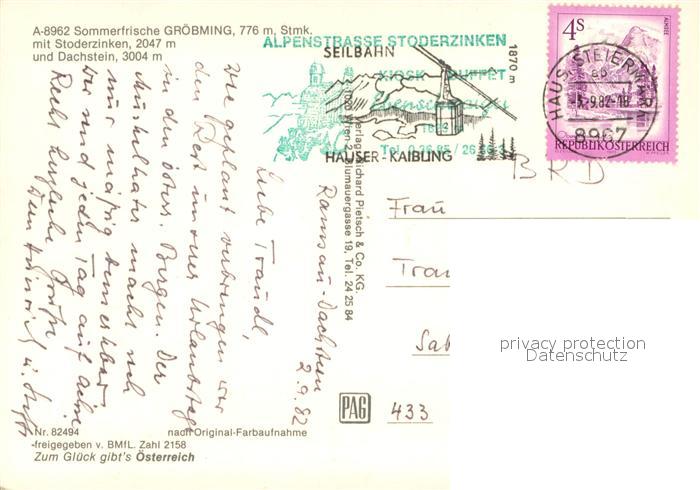 A-8962 Sommerfrische GRÖBMING, 776 m, Stmk.
mit Stoderzinken, 2047 m
und Dachstein, 3004 m
ALPENSTRASSE STODERZINKEN
SEILBAHN
1870 m
KIOSK BUFFET
HAUSER-KAIBLING
4S
ALMSEE
REPUBLIK ÖSTERREICH
HAUS, STEIERM
-3.-9.82-18
8967
BRD
Frau
Trau
Sal
433
Verlag Richard Pietsch & Co. KG.
Blumauergasse 19, Tel. 24 25 84
Ramsau-Dachstein
2.9.82
Liebe Traudl,
wie geplant verbringen wir
den Rest unserer Urlaubstage
in den österr. Bergen. Der
Muskelkater macht sich
nur mäßig bemerkbar
wir sind jeden Tag auf Achse
Recht herzliche Grüße
Dein Heinrich u.
PAG
Nr. 82494
nach Original-Farbaufnahme
freigegeben v. BMfL. Zahl 2158
Zum Glück gibt's Österreich
privacy protection
Datenschutz